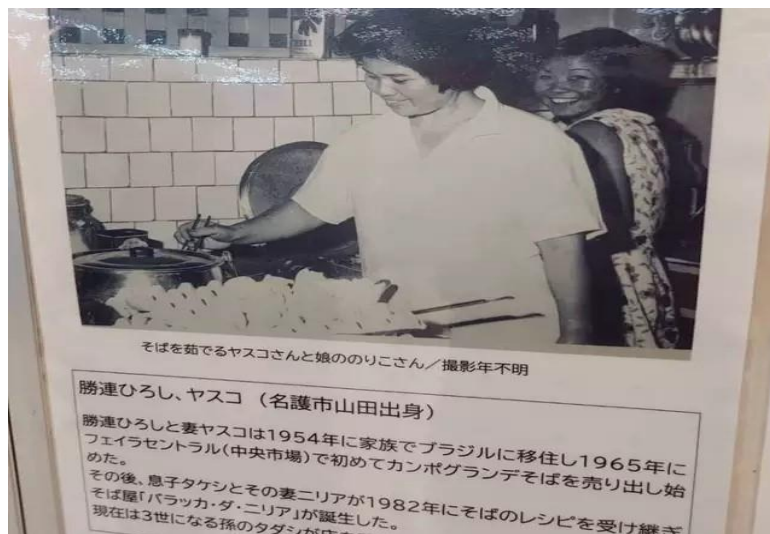 そばを茹でるヤスコさんと娘ののりこさん／撮影年不明
勝連ひろし、ヤスコ （名護市山田出身）
勝連ひろしと妻ヤスコは1954年に家族でブラジルに移住し1965年に
フェイラセントラル(中央市場)で初めてカンポグランデそばを売り出し始
めた。
その後、息子タケシとその妻ニリアが1982年にそばのレシピを受け継ぎ
そば屋「バラッカ・ダ・ニリア」が誕生した。
現在は3世になる孫のタダシが店を